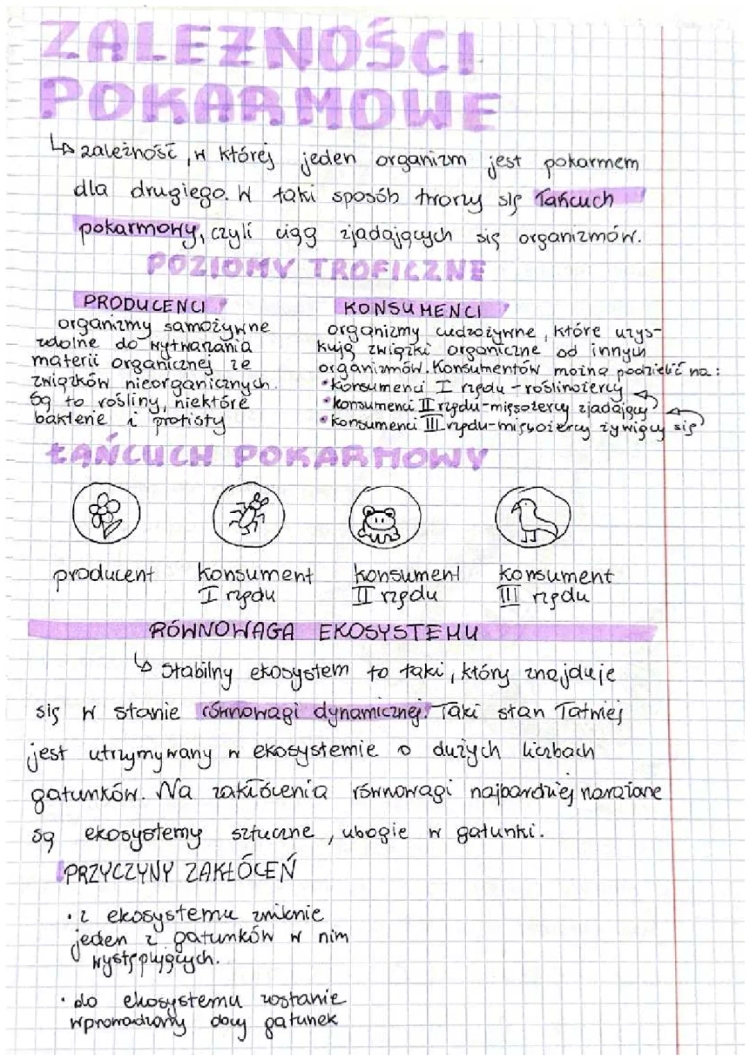 ZALEŻNOŚCI
POKARMOWE
↳ zależność, w której jeden organizm jest pokarmem
dla drugiego. W taki sposób tworzy się łańcuch
pokarmowy, czyli ciąg zjadających się organizmów.
POZIOMY TROFICZNE
PRODUCENCI
organizmy samożywne
zdolne do wytwarzania
materii organicznej ze
związków nieorganicznych.
Są to rośliny, niektóre
bakterie i protisty
KONSUMENCI
organizmy cudzożywne, które uzys-
kują związki organiczne od innych
organizmów. Konsumentów można podzielić na:
• konsumenci I rzędu - roślinożercy
• konsumenci II rzędu - mięsożercy zjadający
• konsumenci III rzędu - mięsożercy żywiący się
ŁAŃCUCH POKARMOWY
producent konsument konsument konsument
I rzędu II rzędu III rzędu
RÓWNOWAGA EKOSYSTEMU
↳ Stabilny ekosystem to taki, który znajduje
się w stanie równowagi dynamicznej. Taki stan łatwiej
jest utrzymywany w ekosystemie o dużych liczbach
gatunków. Na zakłócenia równowagi najbardziej narażone
są ekosystemy sztuczne, ubogie w gatunki.
PRZYCZYNY ZAKŁÓCEŃ
• z ekosystemu zniknie
jeden z gatunków w nim
występujących.
• do ekosystemu zostanie
wprowadzony gatunek